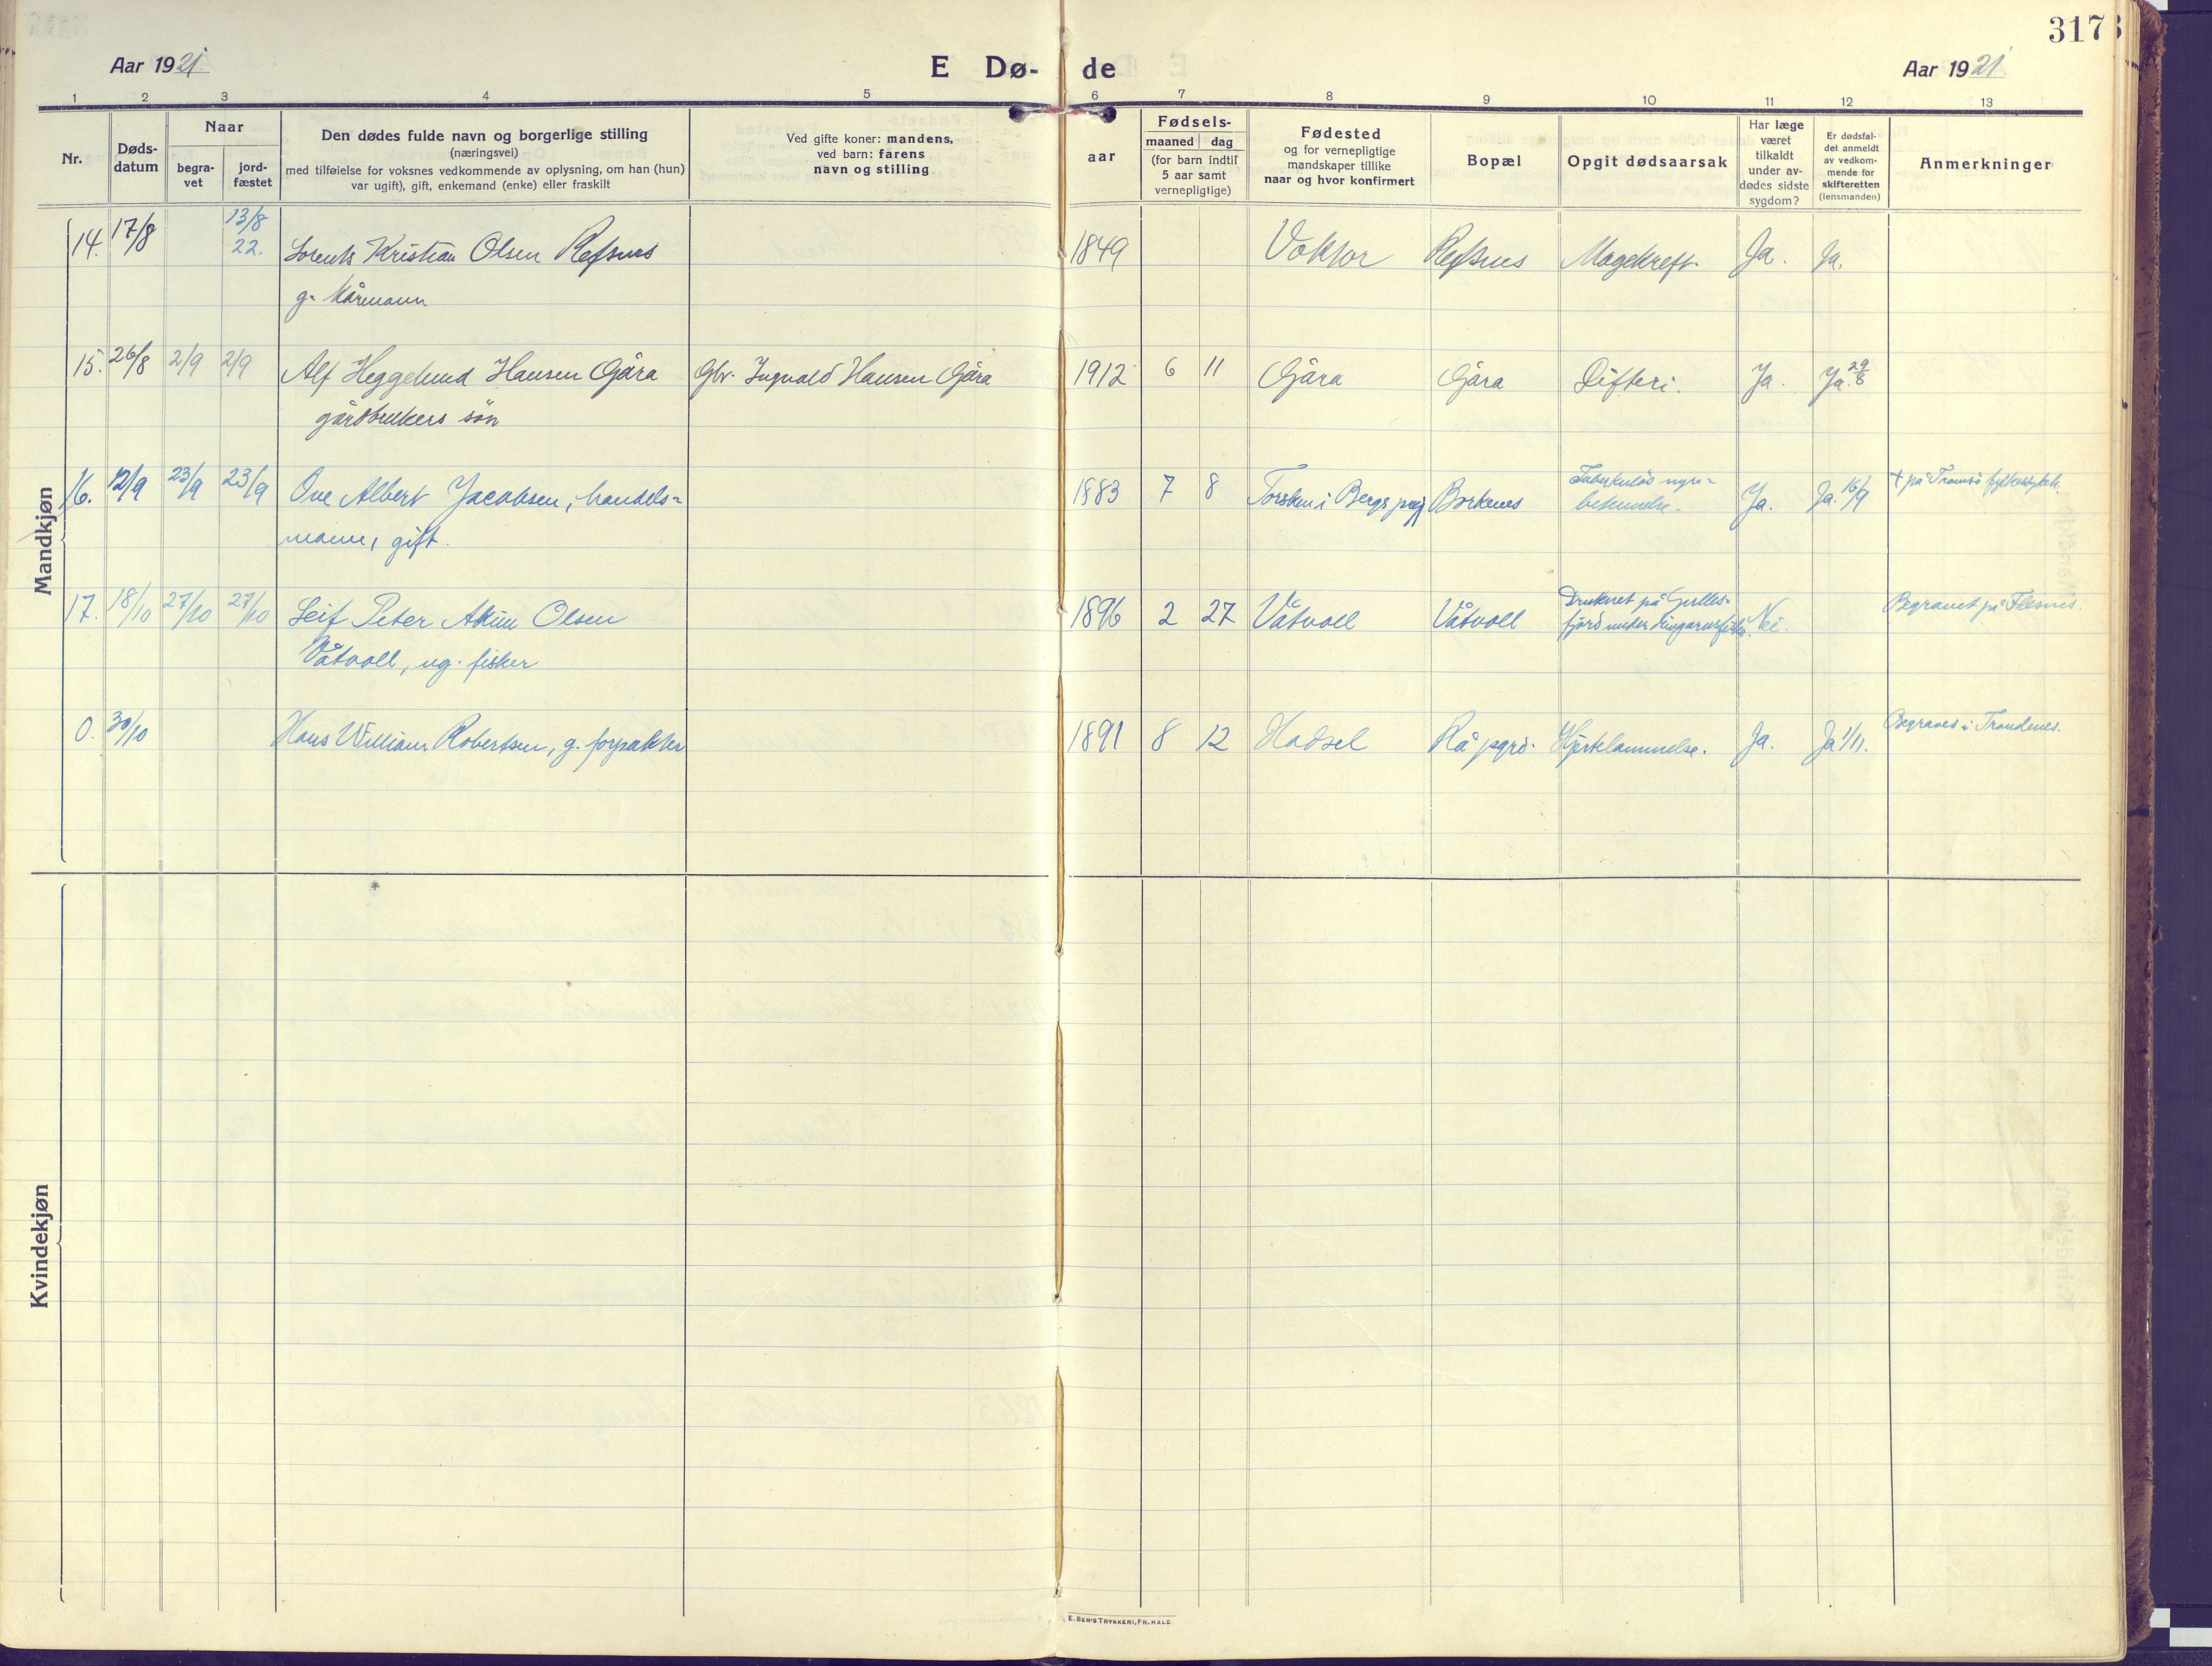 317
Aar 1921
E Dø-
de
Aar 1921
1 2 3 4 5 6 7 8 9 10 11 12 13
Nr.
Døds-
datum
Naar
begra-
vet
jord-
fæstet
Den dødes fulde navn og borgerlige stilling
(næringsvei)
med tilføielse for voksnes vedkommende av oplysning, om han (hun)
var ugift), gift, enkemand (enke) eller fraskilt
Ved gifte koner: mandens,
ved barn: farens
navn og stilling
aar
Fødsels-
maaned dag
(for barn indtil
5 aar samt
vernepligtige)
Fødested
og for vernepligtige
mandskaper tillike
naar og hvor konfirmert
Bopæl
Opgit dødsaarsak
Har læge
været
tilkaldt
under av-
dødes sidste
sygdom?
Er dødsfal-
det anmeldt
av vedkom-
mende for
skifteretten
(lensmanden)
Anmerkninger
Mandkjøn
14. 17/8 13/8 22. Lorents Kristian Olsen Refsnes 1849 Refsnes Magekreft. Ja. Ja.
g. kårmann
15. 26/8 2/9 2/9 Alf Heggelund Hansen Gåra Gbr. Ingvald Hansen Gåra 1912 6 11 Gåra Gåra Difteri. Ja. Ja. 29/8
gårdbrukers søn
16. 12/9 23/9 23/9 Ove Albert Jacobsen, handels- 1883 7 8 Torsken i Bergs Borkenes Tuberkuløs nyre- Ja. Ja. 16/9 † på Tromsø fylkessykeh.
mann, gift.
17. 18/10 27/10 27/10 Leif Peter Akim Olsen 1896 2 27 Våtvoll Våtvoll Druknet på Gulles-
fjord under Nei. Begravet på Flesnes.
Våtvoll, ug. fisker
0. 30/10 Hans William Robertsen, g. forpakter 1891 8 12 Hadsel Rå pgrd. Hjertelammelse. Ja. Ja 1/11. Begraves i Trondenes.
Kvindekjøn
E. SEM'S TRYKKERI, FR.HALD